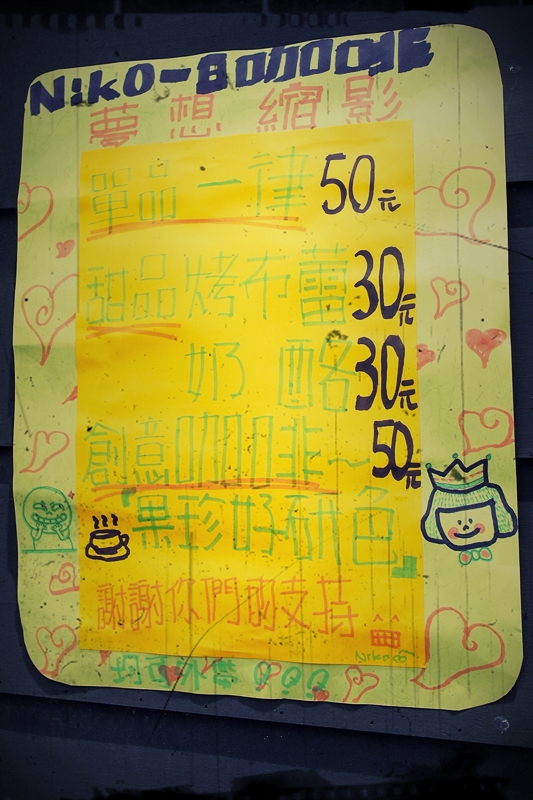 Niko-日咖啡
夢想縮影
單品一律50元
甜品烤布蕾30元
奶酪30元
創意咖啡~50元
『黑珍好研色』
謝謝你們的支持
Niko